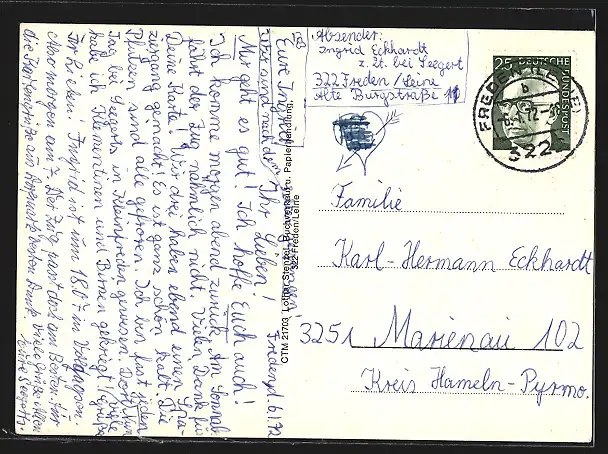 Absender:
Ingrid Eckhardt
z. Zt. bei Seegert
322 Freden/Leine
Alte Burgstraße 11
25 DEUTSCHE
BUNDESPOST
FREDEN (LEINE)
b
-6.-1.72-
322
Familie
Karl-Hermann Eckhardt
3251 Marienau 102
Kreis Hameln-Pyrmo.
CTM 21703 Lothar Stenzel, Buchverkauf u. Papierhandlung,
322 Freden/Leine
Freden, d. 6.1.72
Ihr Lieben!
Mir geht es gut! Ich hoffe Euch auch!
Ich komme morgen abend zurück. Am Sonnab.
fährt der Zug nähmlich nicht. Vielen Dank für
Deine Karte! Wir drei haben ebend einen Spa-
zurgang gemacht! Es ist ganz schön kalt. Die
Pfützen sind alle gefroren. Ich bin fast jeden
Tag bei Seegerts in Kleinfreden gewesen. Dort
habe ich Klementinen und Birnen gekrigt! Viele Grüße
Eure Ingrid
Ihr Lieben! Ingrid ist um 18.07 in
morgen am 7. Der Zug passt doch am Besten. Für
die Dank. Viele Grüße Allen
Eure Seegerts